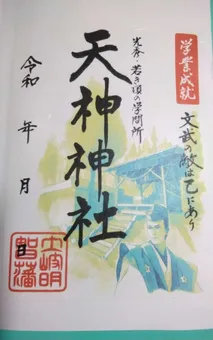 学業成就
文武の敵は己にあり
光秀・若き頃の学問所
天神神社
令和 年 月 日